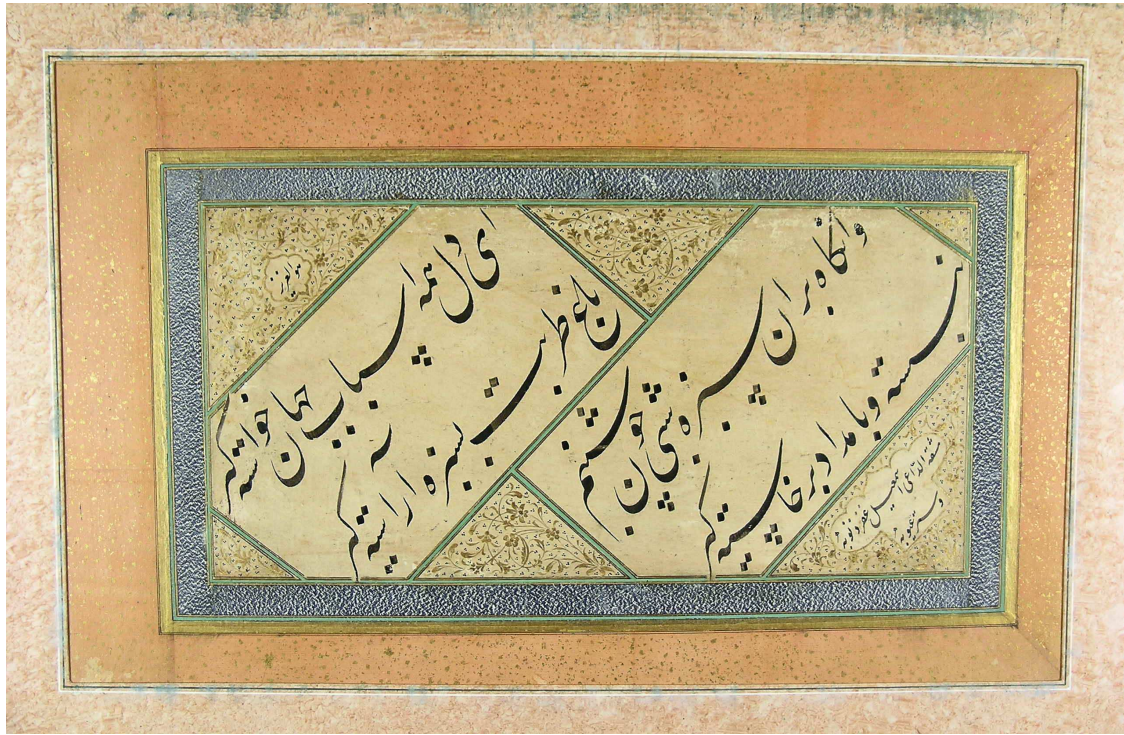 هو العزیز
ای دل همه اسباب جهان خواسته گیر
باغ طربت بسبزه اراسته گیر
وانگاه بران سبزه شبی چون شبنم
بنشسته و بامداد برخاسته گیر
مشقه الداعی اسمعیل غفر ذنوبه
و ستر عیوبه